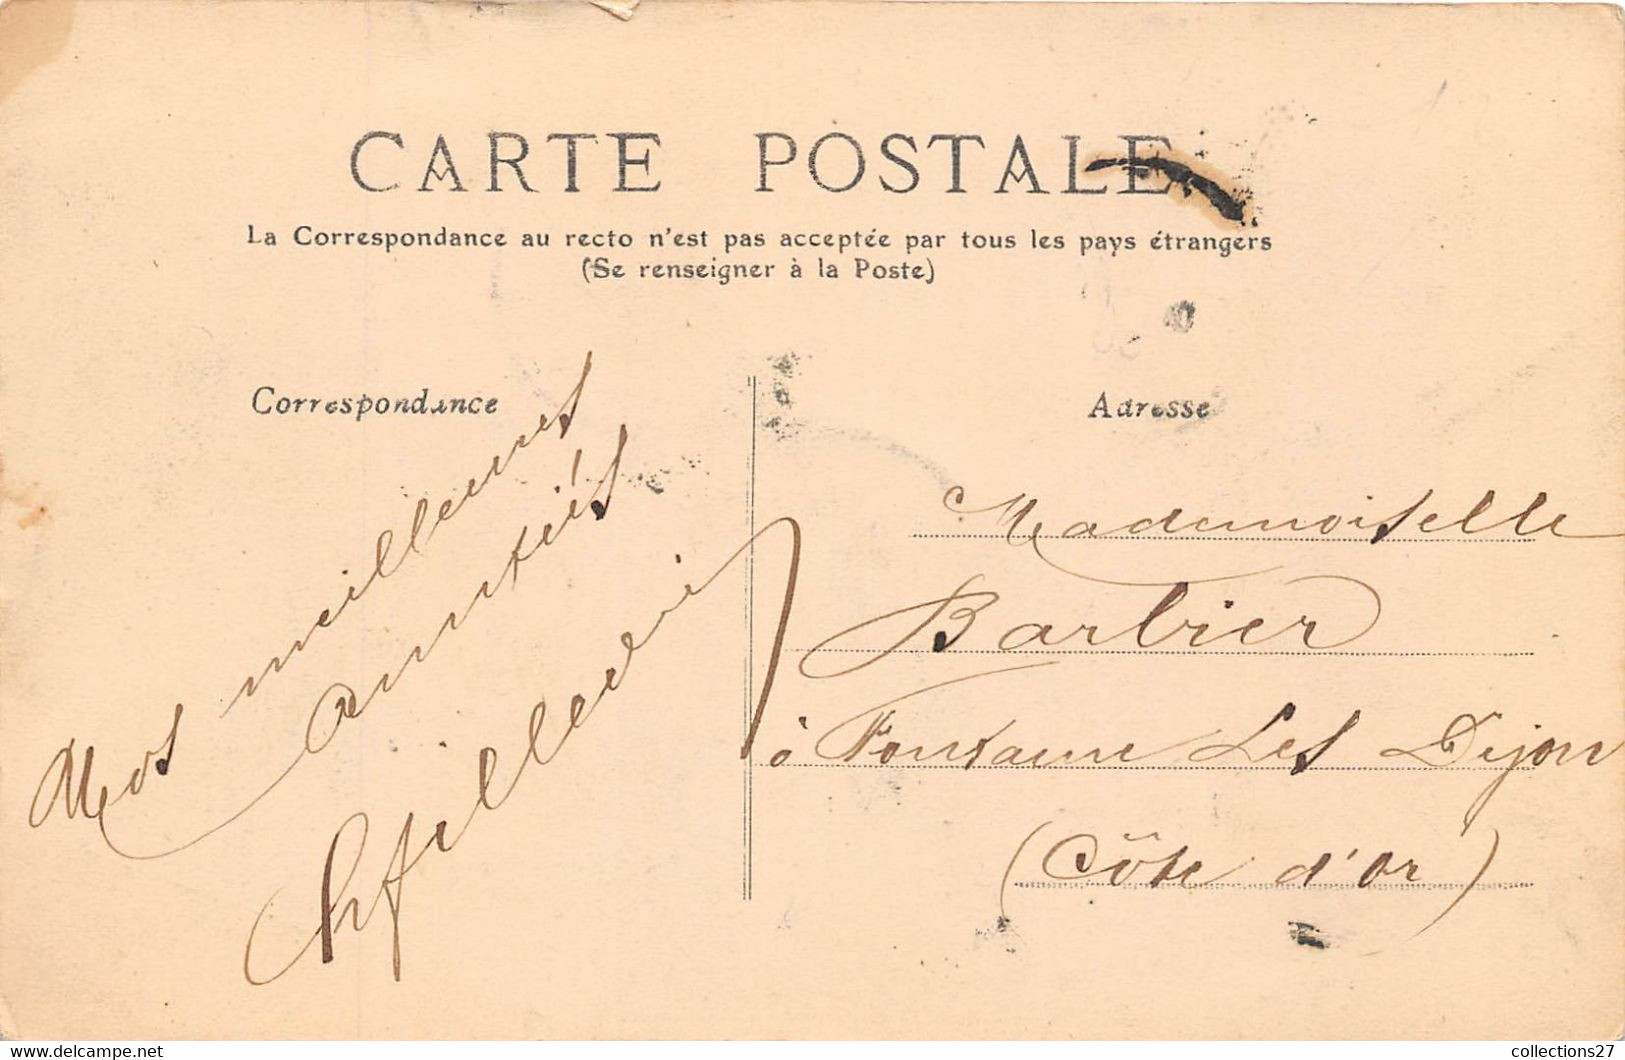 CARTE POSTALE
La Correspondance au recto n'est pas acceptée par tous les pays étrangers
(Se renseigner à la Poste)
Correspondance
Mos meilleures
amitiés
Adresse
Mademoiselle
Barbier
à Fontaine Les Dijon
(Côte d'or)
collections27